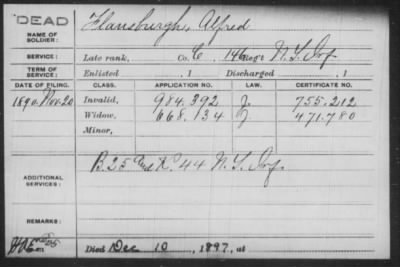 DEAD
NAME OF SOLDIER: Hansburgh, Alfred
SERVICE: Late rank, Co. C, 146 Reg't N.Y. Inf.
TERM OF SERVICE: Enlisted , 1 Discharged , 1
DATE OF FILING. CLASS. APPLICATION NO. LAW. CERTIFICATE NO.
1890. Nov. 20 Invalid, 984.392 J. 755.212
Widow, 668.134 J 471.780
Minor,
ADDITIONAL SERVICES: B. 25 and K 44 N.Y. Inf.
REMARKS:
Died Dec 10, 1897, at